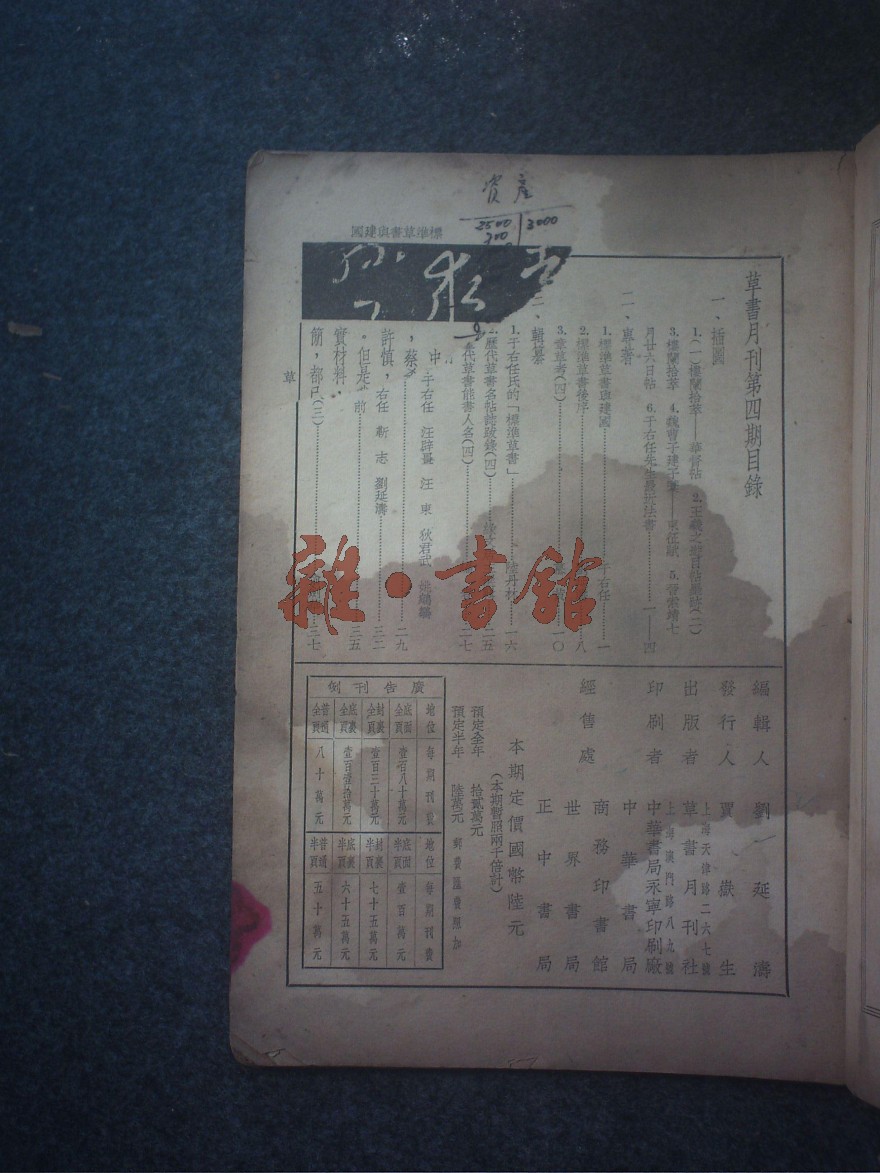 資產
2500 3000
300
標準草書與建國
草書月刊第四期目錄
一、插圖
1.(一)樓蘭拾萃——華督帖 2.王羲之
3.樓蘭拾萃 4.魏曹子建子章——東征賦 5.晉索靖七
月廿六日帖 6.于右任先生最近法書……一——四
二、專著
1.標準草書與建國……于右任……一
2.標準草書後序……八
3.章草考(四)……一〇
三、輯纂
1.于右任氏的「標準草書」……陸丹林……一六
2.歷代草書名帖諸跋錄(四)……二五
代草書能書人名(四)……二七
中
于右任 汪辟畺 汪東 狄君武 姚鵷雛……二九
,蔡
許慎,右任 靳志 劉延濤……三二
。但是 前……三五
實材料
簡,都已(三)……三七
草
雜·書館
編輯人 劉延濤
發行人 賈嶽生
上海天津路二六七號
出版者 草書月刊社
上海澳門路八九號
印刷者 中華書局永寧印刷廠
經售處 中華書局
商務印書館
世界書局
正中書局
本期定價國幣陸元
(本期暫照兩千倍計)
預定全年 拾貳萬元
預定半年 陸萬元 郵費匯費照加
廣告刊例
地位 每期刊費 地位 每期刊費
底面全頁 壹百八十萬元 底面半頁 壹百萬元
封裏全頁 壹百三十萬元 封裏半頁 七十五萬元
底裏全頁 壹百壹拾萬元 底裏半頁 六十五萬元
普通全頁 八十萬元 普通半頁 五十萬元